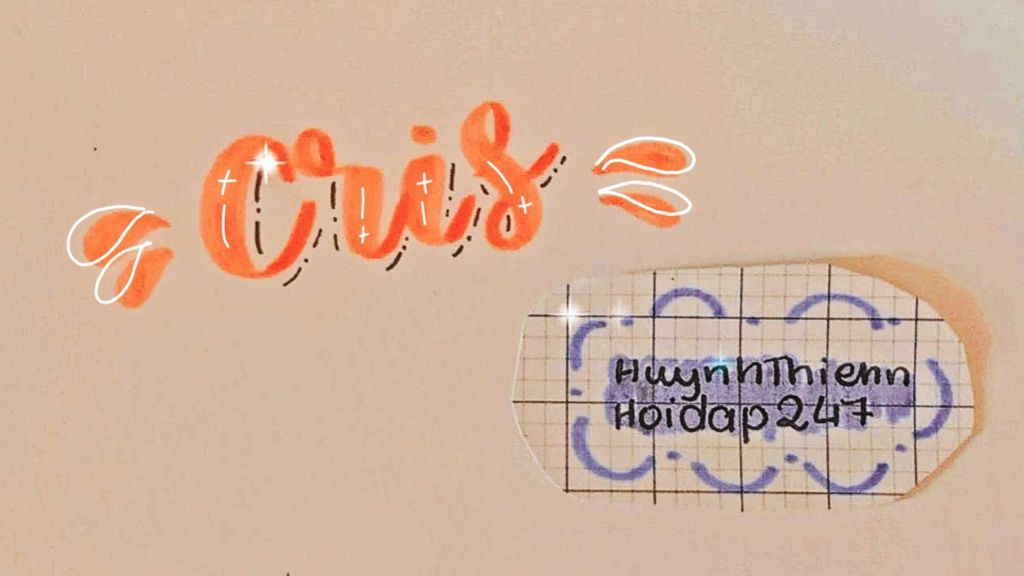 Cris
HuynhThienn
Hoidap247